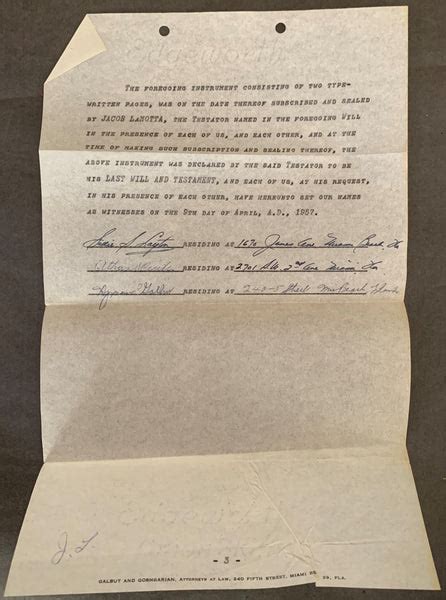 THE FOREGOING INSTRUMENT CONSISTING OF TWO TYPE-
WRITTEN PAGES, WAS ON THE DATE THEREOF SUBSCRIBED AND SEALED
BY JACOB LANOTTA, THE TESTATOR NAMED IN THE FOREGOING WILL
IN THE PRESENCE OF EACH OF US, AND EACH OTHER, AND AT THE
TIME OF MAKING SUCH SUBSCRIPTION AND SEALING THEREOF, THE
ABOVE INSTRUMENT WAS DECLARED BY THE SAID TESTATOR TO BE
HIS LAST WILL AND TESTAMENT, AND EACH OF US, AT HIS REQUEST,
IN HIS PRESENCE OF EACH OTHER, HAVE HEREUNTO SET OUR NAMES
AS WITNESSES ON THE 9TH DAY OF APRIL, A.D., 1957.
RESIDING AT 1670 James Ave Miami Beach Fla
RESIDING AT 2701 S.W. 2nd Ave Miami Fla
Hyman Galbut RESIDING AT 240-5 Street
J. L.
- 3 -
GALBUT AND GORNGARIAN, ATTORNEYS AT LAW, 240 FIFTH STREET, MIAMI 39, FLA.